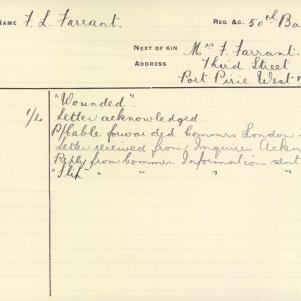 NAME F. L. Farrant. REG. &C. 50th Ba
NEXT OF KIN Mrs F. Farrant.
ADDRESS Third Street
Port Pirie West
"Wounded".
1/2 Letter acknowledged.
P/Cable forwarded Commrs London
Letter received from Inquirer Ackn
Reply from Commrs Information sent
"Slip" " " " "